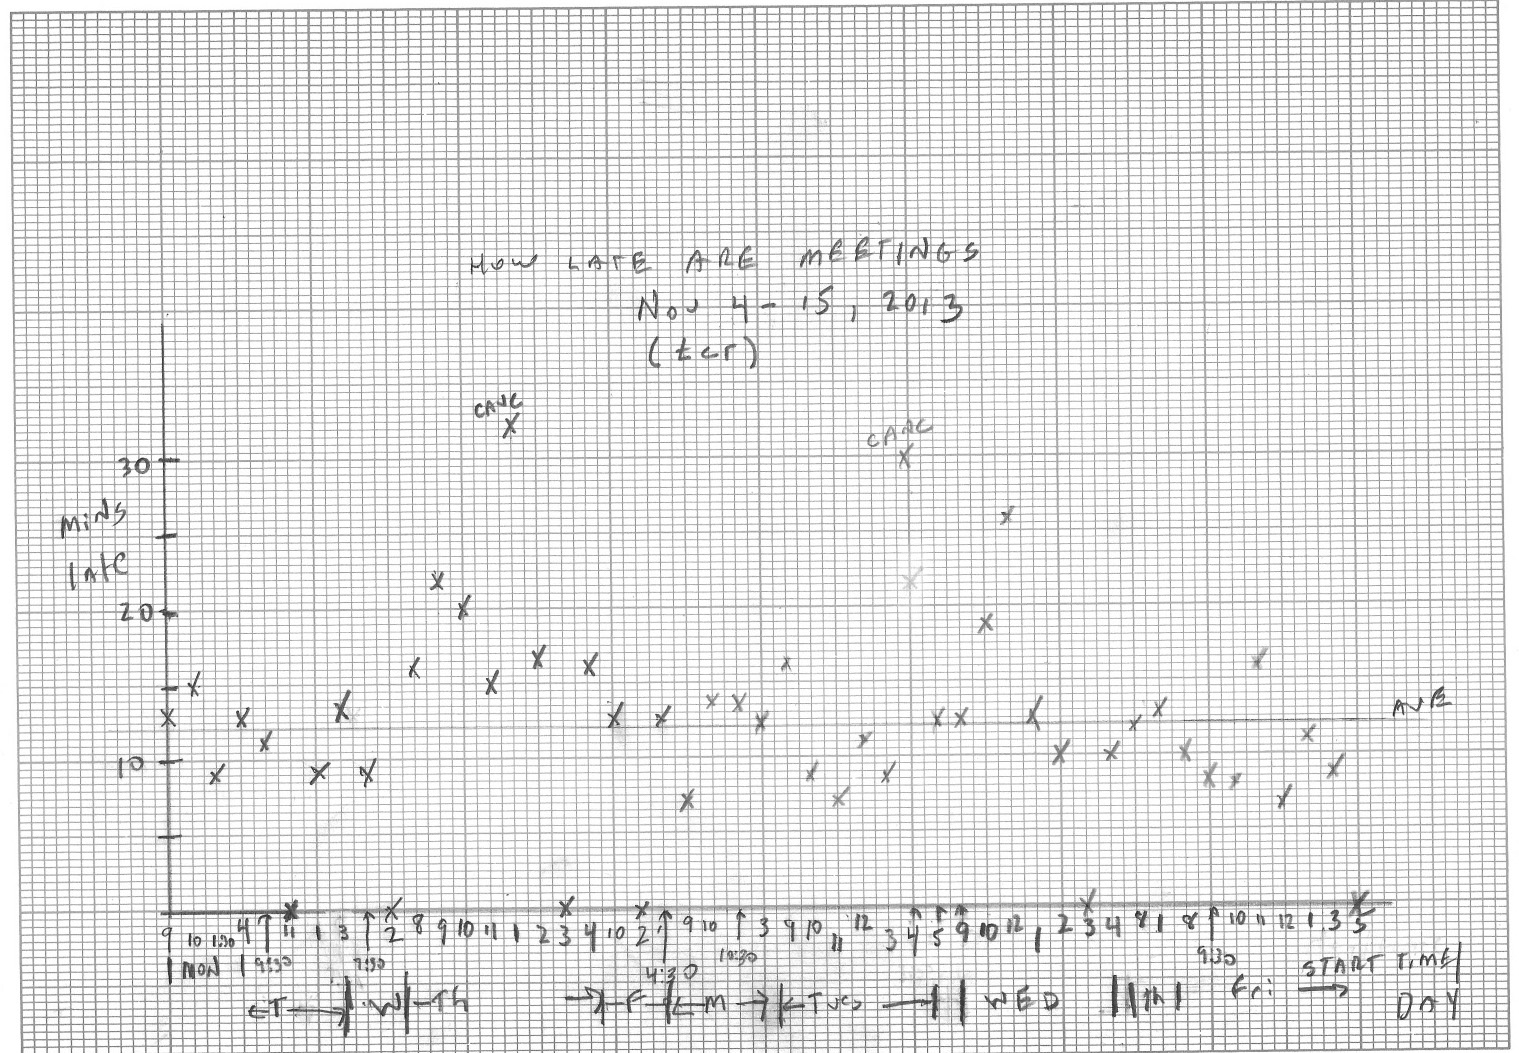 HOW LATE ARE MEETINGS
Nov 4 - 15, 2013
(tcr)
CANC
CANC
30
MINS
LATE
20
AVE
10
9 10 1:30 4 ↑ 11 1 3 ↑ 2 8 9 10 11 1 2 3 4 10 2 ↑ 9 10 ↑ 3 9 10 11 12 3 4 5 9 10 12 1 2 3 4 8 1 8 ↑ 10 11 12 1 3 5
9:30 7:30 4:30 10:30 9:30
| MON | ←T→ | W | Th → | F → | ← M → | ← Tues → | | WED | | Th | Fri
START TIME/
DAY